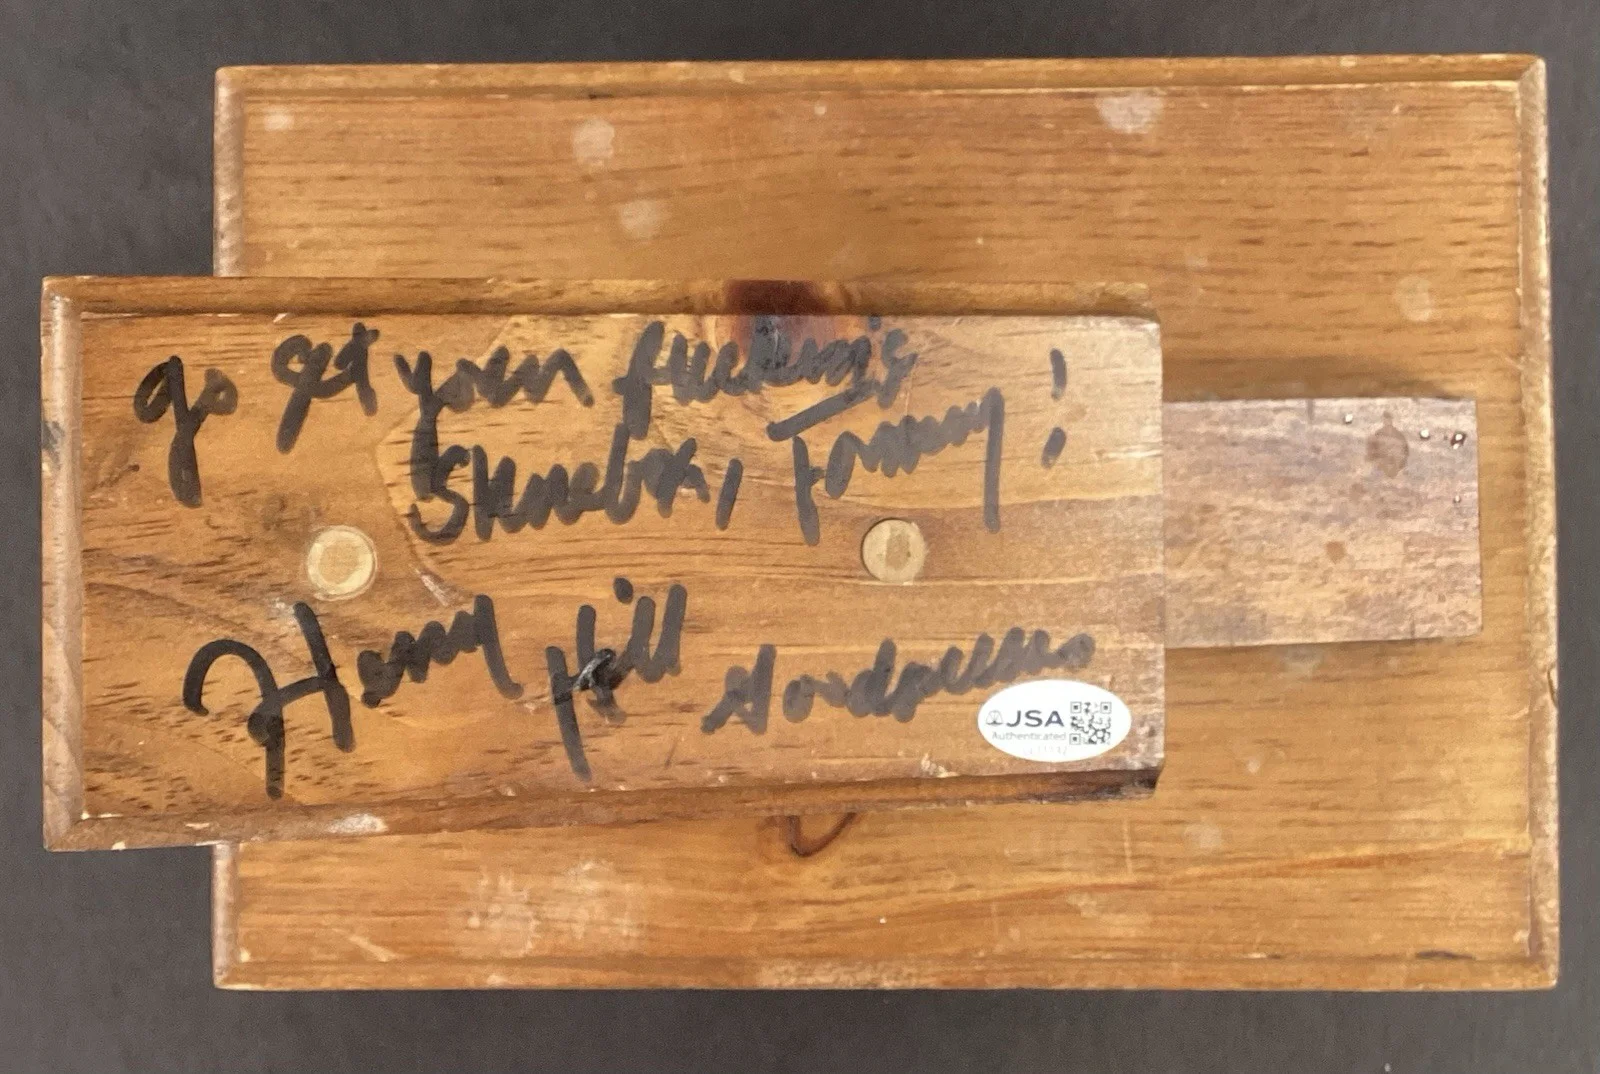 go get your fucking
Shinebox, Tommy!
Henry Hill Goodfellas
JSA
Authenticated